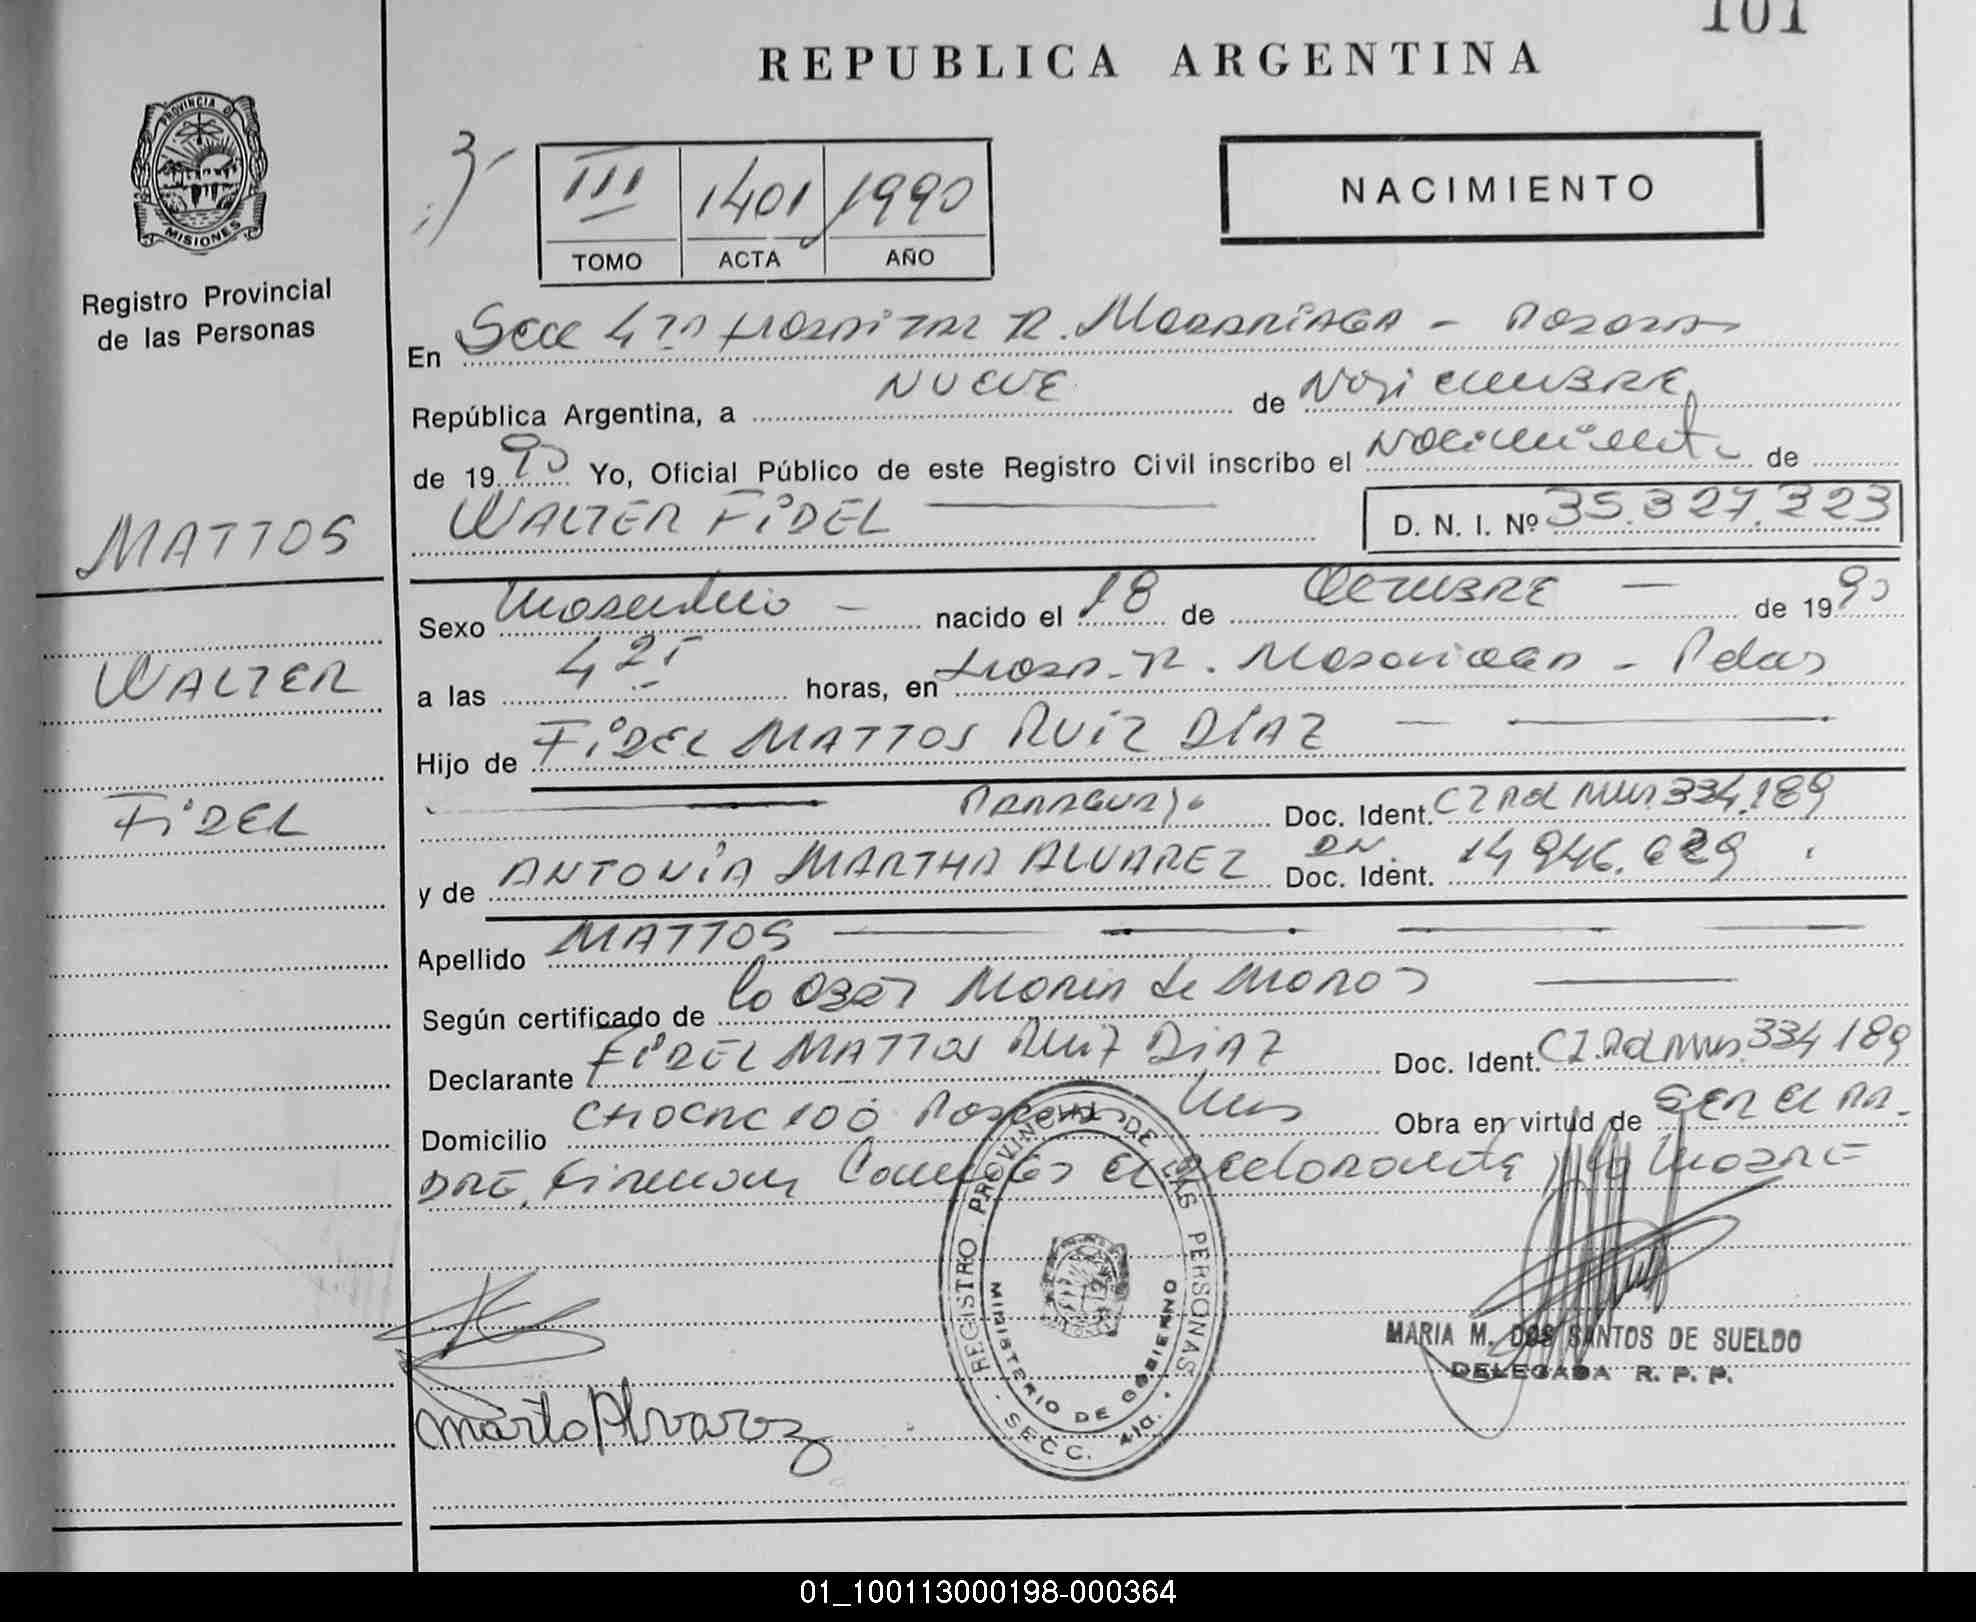 101
REPUBLICA ARGENTINA
PROVINCIA DE
MISIONES
Registro Provincial
de las Personas
III 1401 1990
TOMO ACTA AÑO
NACIMIENTO
En Secc 4ta Hospital R. Madariaga - Posadas
República Argentina, a NUEVE de Noviembre
de 1990 Yo, Oficial Público de este Registro Civil inscribo el Nacimiento de
WALTER FIDEL D. N. I. Nº 35.327.323
MATTOS
WALTER
FIDEL
Sexo Masculino nacido el 18 de OCTUBRE de 1990
a las 4 horas, en Hosp. R. Madariaga - Pdas
Hijo de FIDEL MATTOS RUIZ DIAZ
Paraguayo Doc. Ident. CI Pol Mns 334.189
y de ANTONIA MARTHA ALVAREZ Doc. Ident. 14 946.629
Apellido MATTOS
Según certificado de la Obst Maria de
Declarante FIDEL MATTOS RUIZ DIAZ Doc. Ident. CI. Pol Mns. 334 189
Domicilio CHACRA 100 Posadas Mns Obra en virtud de SER EL PA-
DRE, Firman el declarante y la MADRE
REGISTRO PROVINCIAL DE LAS PERSONAS
MINISTERIO DE GOBIERNO
SECC. 4ta.
MARIA M. DOS SANTOS DE SUELDO
DELEGADA R. P. P.
Marta Alvarez
01_100113000198-000364